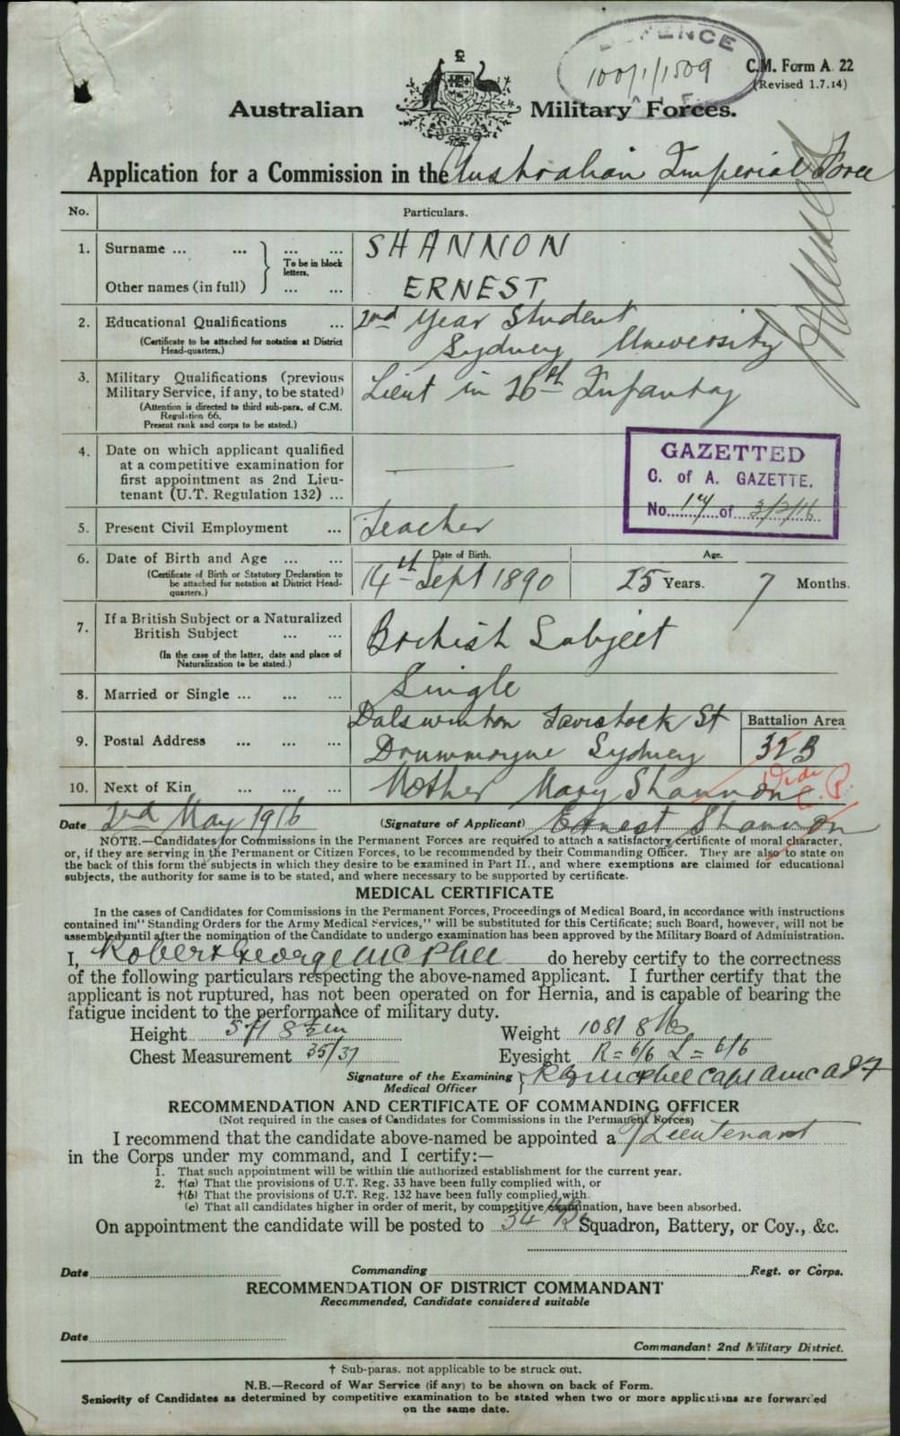 DEFENCE
100/1/1509
C.M. Form A 22
(Revised 1.7.14)
Australian Military Forces.
Application for a Commission in the Australian Imperial Force
No. Particulars.
1. Surname ... ... To be in block letters. ... ... SHANNON
Other names (in full) ... ... ERNEST
2. Educational Qualifications ... 2nd Year Student
(Certificate to be attached for notation at District Head-quarters.) Sydney University
3. Military Qualifications (previous Military Service, if any, to be stated) Lieut in 26th Infantry
(Attention is directed to third sub-para. of C.M. Regulation 66.
Present rank and corps to be stated.)
4. Date on which applicant qualified
at a competitive examination for
first appointment as 2nd Lieu-
tenant (U.T. Regulation 132) ...
GAZETTED
C. of A. GAZETTE.
No. 17 of
5. Present Civil Employment ... Teacher
6. Date of Birth and Age ... ... Date of Birth. Age.
(Certificate of Birth or Statutory Declaration to be attached for notation at District Head-quarters.) 14th Sept 1890 25 Years. 7 Months.
7. If a British Subject or a Naturalized
British Subject ... ... British Subject
(In the case of the latter, date and place of Naturalization to be stated.)
8. Married or Single ... ... ... Single
9. Postal Address ... ... ... Dalswinton Tavistock St
Drummoyne Sydney
Battalion Area
32B
10. Next of Kin ... ... ... Mother Mary Shannon
Date 2nd May 1916 (Signature of Applicant) Ernest Shannon
NOTE.—Candidates for Commissions in the Permanent Forces are required to attach a satisfactory certificate of moral character,
or, if they are serving in the Permanent or Citizen Forces, to be recommended by their Commanding Officer. They are also to state on
the back of this form the subjects in which they desire to be examined in Part II., and where exemptions are claimed for educational
subjects, the authority for same is to be stated, and where necessary to be supported by certificate.
MEDICAL CERTIFICATE
In the cases of Candidates for Commissions in the Permanent Forces, Proceedings of Medical Board, in accordance with instructions
contained in "Standing Orders for the Army Medical Services," will be substituted for this Certificate; such Board, however, will not be
assembled until after the nomination of the Candidate to undergo examination has been approved by the Military Board of Administration.
I, Robert George McPhee do hereby certify to the correctness
of the following particulars respecting the above-named applicant. I further certify that the
applicant is not ruptured, has not been operated on for Hernia, and is capable of bearing the
fatigue incident to the performance of military duty.
Height 5ft 8½in Weight 10st 8lbs
Chest Measurement 35/37 Eyesight R=6/6 L=6/6
Signature of the Examining Medical Officer RG McPhee Capt AAMC AIF
RECOMMENDATION AND CERTIFICATE OF COMMANDING OFFICER
(Not required in the cases of Candidates for Commissions in the Permanent Forces)
I recommend that the candidate above-named be appointed a 2/Lieutenant
in the Corps under my command, and I certify:—
1. That such appointment will be within the authorized establishment for the current year.
2. †(a) That the provisions of U.T. Reg. 33 have been fully complied with, or
†(b) That the provisions of U.T. Reg. 132 have been fully complied with.
(c) That all candidates higher in order of merit, by competitive examination, have been absorbed.
On appointment the candidate will be posted to 34th Bn Squadron, Battery, or Coy., &c.
Date Commanding Regt. or Corps.
RECOMMENDATION OF DISTRICT COMMANDANT
Recommended, Candidate considered suitable
Date
Commandant 2nd Military District.
† Sub-paras. not applicable to be struck out.
N.B.—Record of War Service (if any) to be shown on back of Form.
Seniority of Candidates as determined by competitive examination to be stated when two or more applications are forwarded
on the same date.